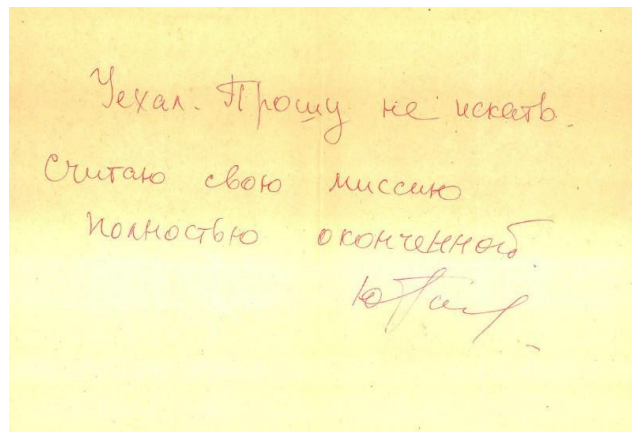 Уехал. Прошу не искать.
Считаю свою миссию
полностью оконченной